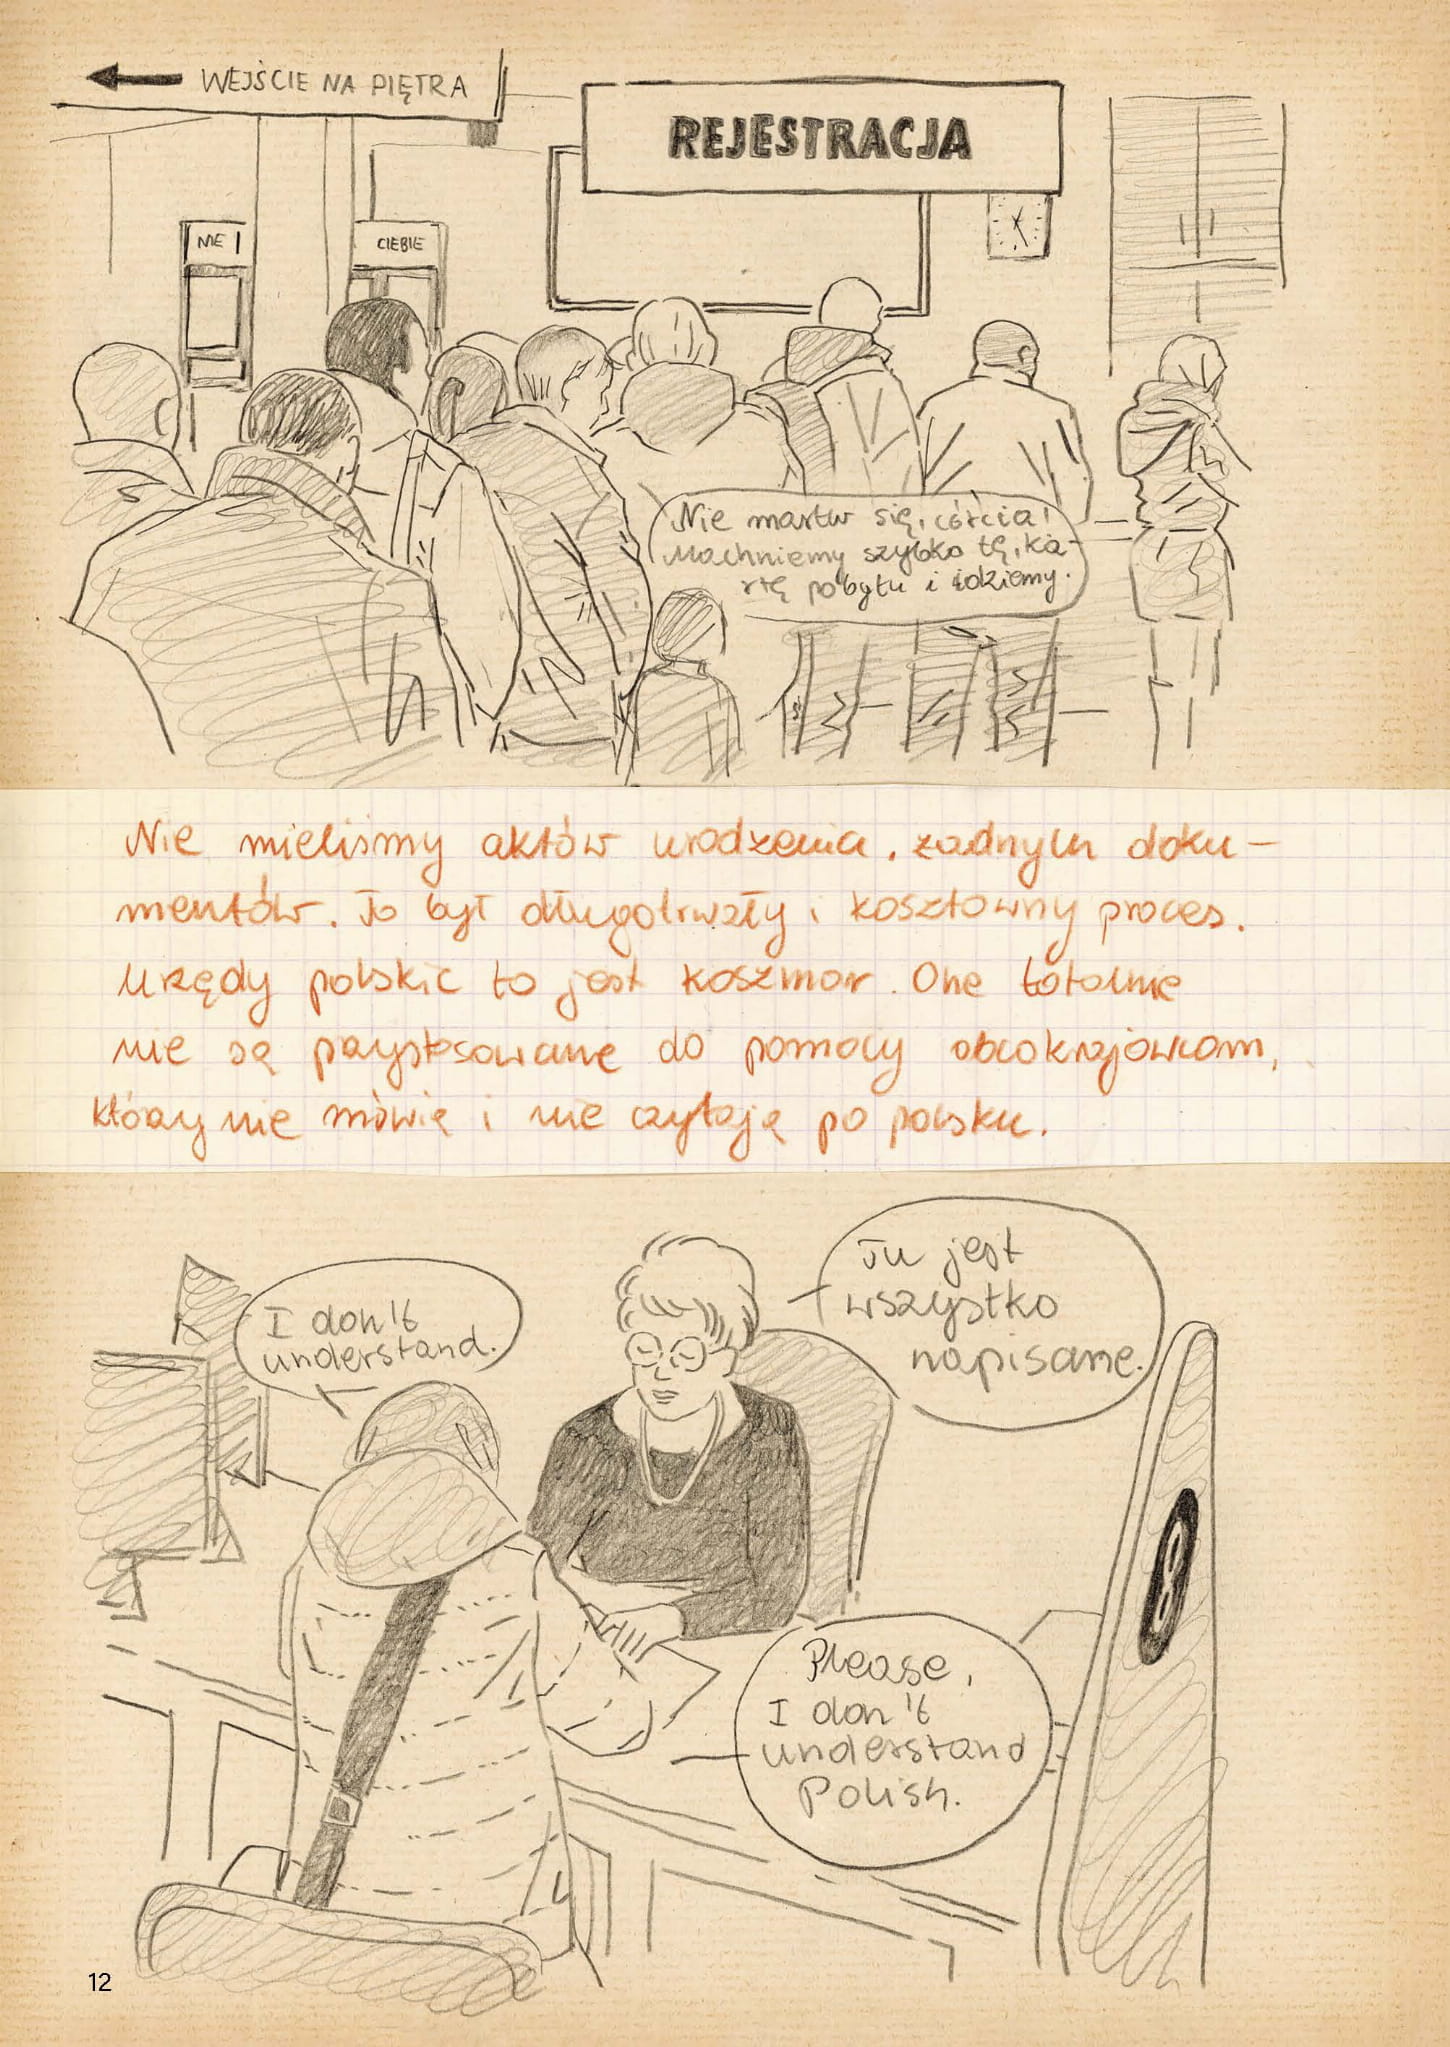 WEJŚCIE NA PIĘTRA
REJESTRACJA
NIE
CIEBIE
Nie martw się, córcia!
Machniemy szybko tę ka-
rtę pobytu i idziemy.
Nie mieliśmy aktów urodzenia, żadnych doku-
mentów. To był długotrwały i kosztowny proces.
Urzędy polskie to jest koszmar. One totalnie
nie są przystosowane do pomocy obcokrajowcom,
którzy nie mówią i nie czytają po polsku.
Tu jest
wszystko
napisane.
I don't
understand.
Please,
I don't
understand
Polish.
8
12